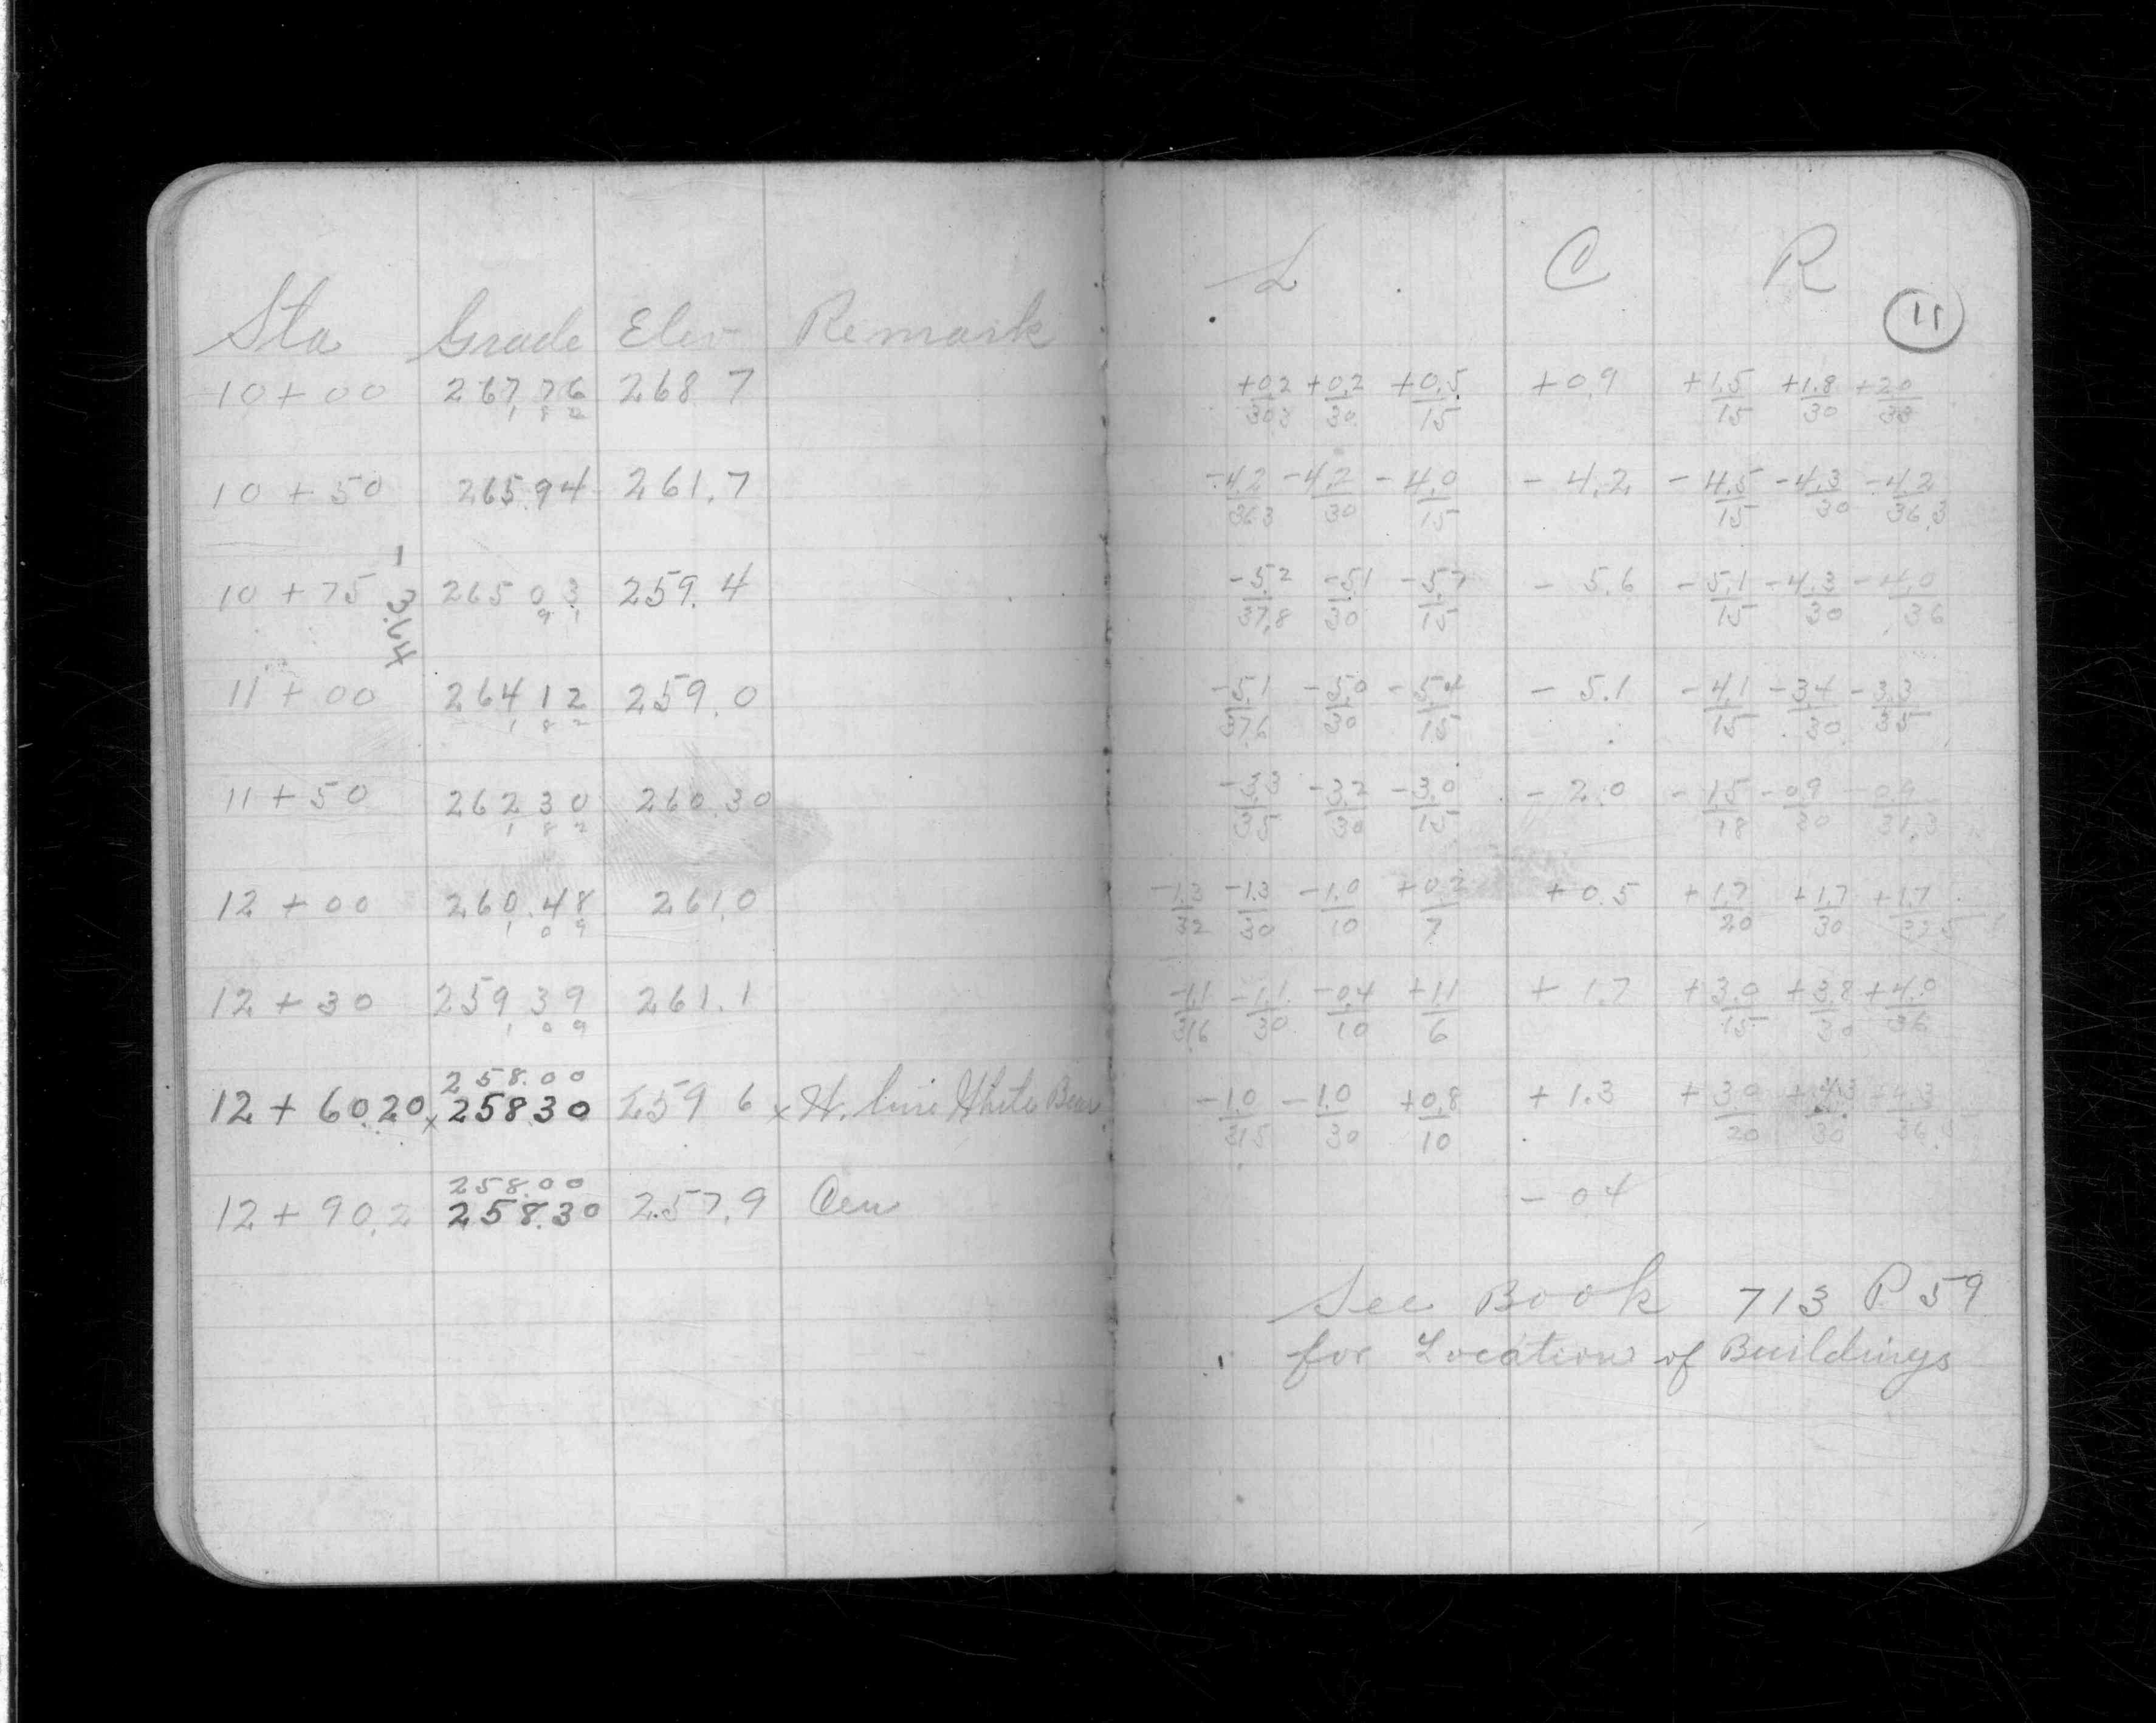 Sta Grade Elev Remark L C R
11
10+00 267.76 268 7 +0.2 +0.2 +0.5 +0.9 +1.5 +1.8 +2.0
1 8 2 30.3 30 15 15 30 33
10+50 265.94 261.7 -4.2 -4.2 -4.0 - 4.2 -4.5 -4.3 -4.2
36.3 30 15 15 30 36.3
-3.64
10+75 265 03 259.4 -5.2 -5.1 -5.7 - 5.6 -5.1 -4.3 -4.0
9 1 37.8 30 15 15 30 36
11+00 264 12 259.0 -5.1 -5.0 -5.4 - 5.1 -4.1 -3.4 -3.3
1 8 2 37.6 30 15 15 30 35
11+50 262 30 260.30 -3.3 -3.2 -3.0 - 2.0 -1.5 -0.9 -0.9
1 8 2 35 30 15 18 30 31.3
12+00 260.48 261.0 -1.3 -1.3 -1.0 +0.2 +0.5 +1.7 +1.7 +1.7
1 0 9 32 30 10 7 20 30 32.5
12+30 259 39 261.1 -1.1 -1.1 -0.4 +1.1 +1.7 +3.0 +3.8 +4.0
1 0 9 31.6 30 10 6 15 30 36
258.00
12+60.20 x 258 30 259 6 x N. line White Bear -1.0 -1.0 +0.8 +1.3 +3.0 +4.3 +4.3
31.5 30 10 20 30 36.5
258.00
12+90.2 258.30 257.9 Cen - 0 4
See Book 713 P 59
for Location of Buildings